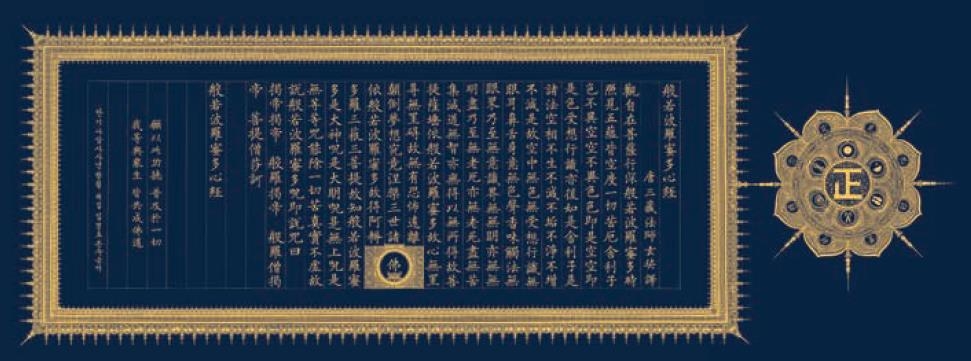 般若波羅蜜多心經
唐三藏法師玄奘譯
觀自在菩薩行深般若波羅蜜多時
照見五蘊皆空度一切苦厄舍利子
色不異空空不異色色即是空空即
是色受想行識亦復如是舍利子是
諸法空相不生不滅不垢不淨不增
不減是故空中無色無受想行識無
眼耳鼻舌身意無色聲香味觸法無
眼界乃至無意識界無無明亦無無
明盡乃至無老死亦無老死盡無苦
集滅道無智亦無得以無所得故菩
提薩埵依般若波羅蜜多故心無罣
㝵無罣㝵故無有恐怖遠離
顚倒夢想究竟涅槃三世諸
佛
依般若波羅蜜多故得阿耨
多羅三藐三菩提故知般若波羅蜜
多是大神呪是大明呪是無上呪是
無等等呪能除一切苦眞實不虛故
說般若波羅蜜多呪即說呪曰
揭帝揭帝 般羅揭帝 般羅僧揭
帝 菩提僧莎訶
般若波羅蜜多心經
願以此功德 普及於一切
我等與衆生 皆共成佛道
正